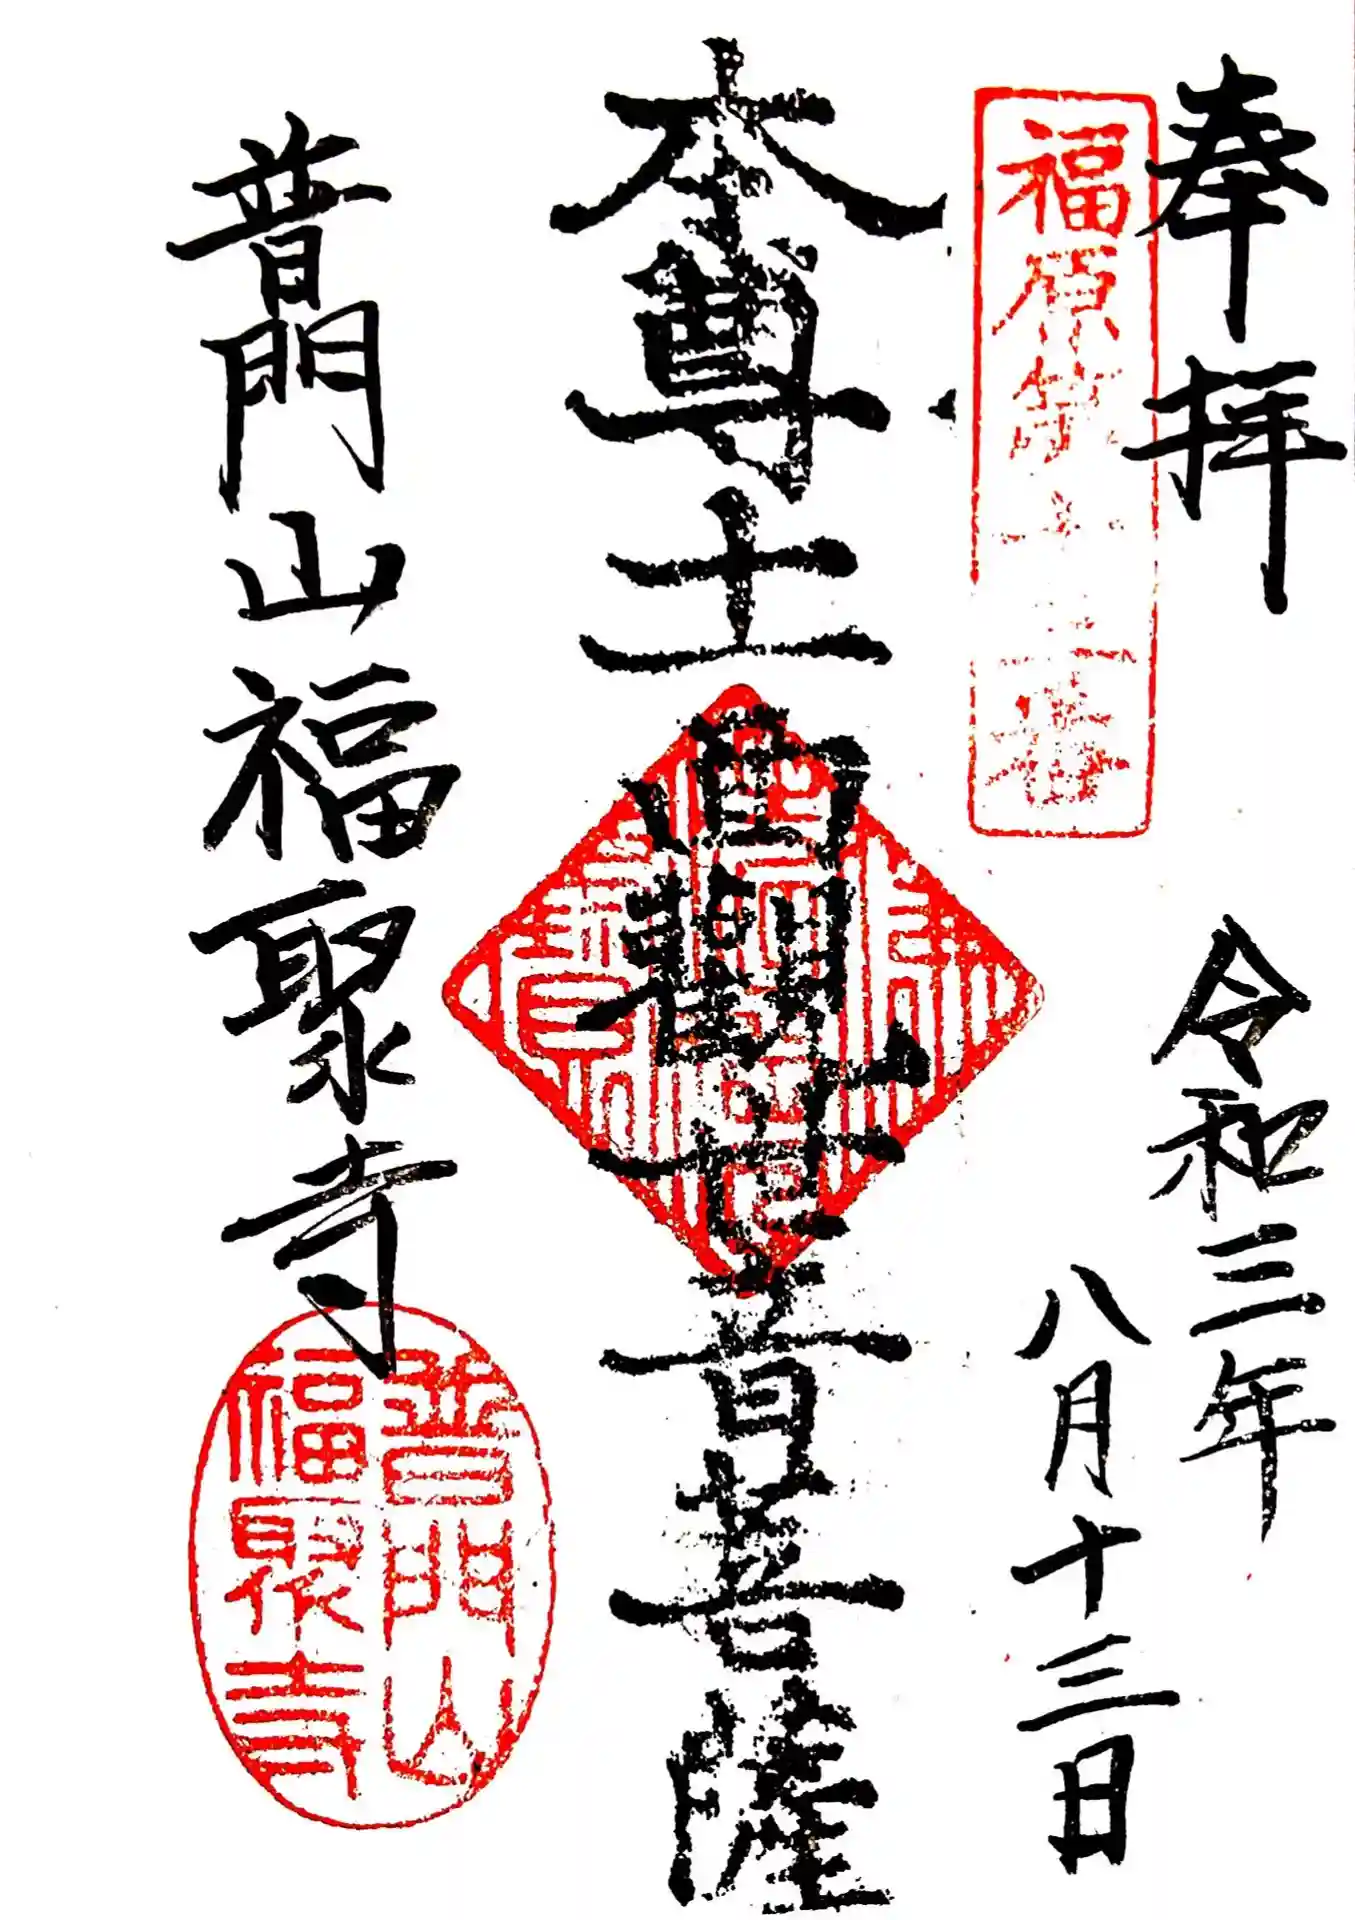 奉拝
福原第十三番
令和三年
八月十三日
本尊十一面觀世音菩薩
普門山福聚寺
普門山
福聚寺